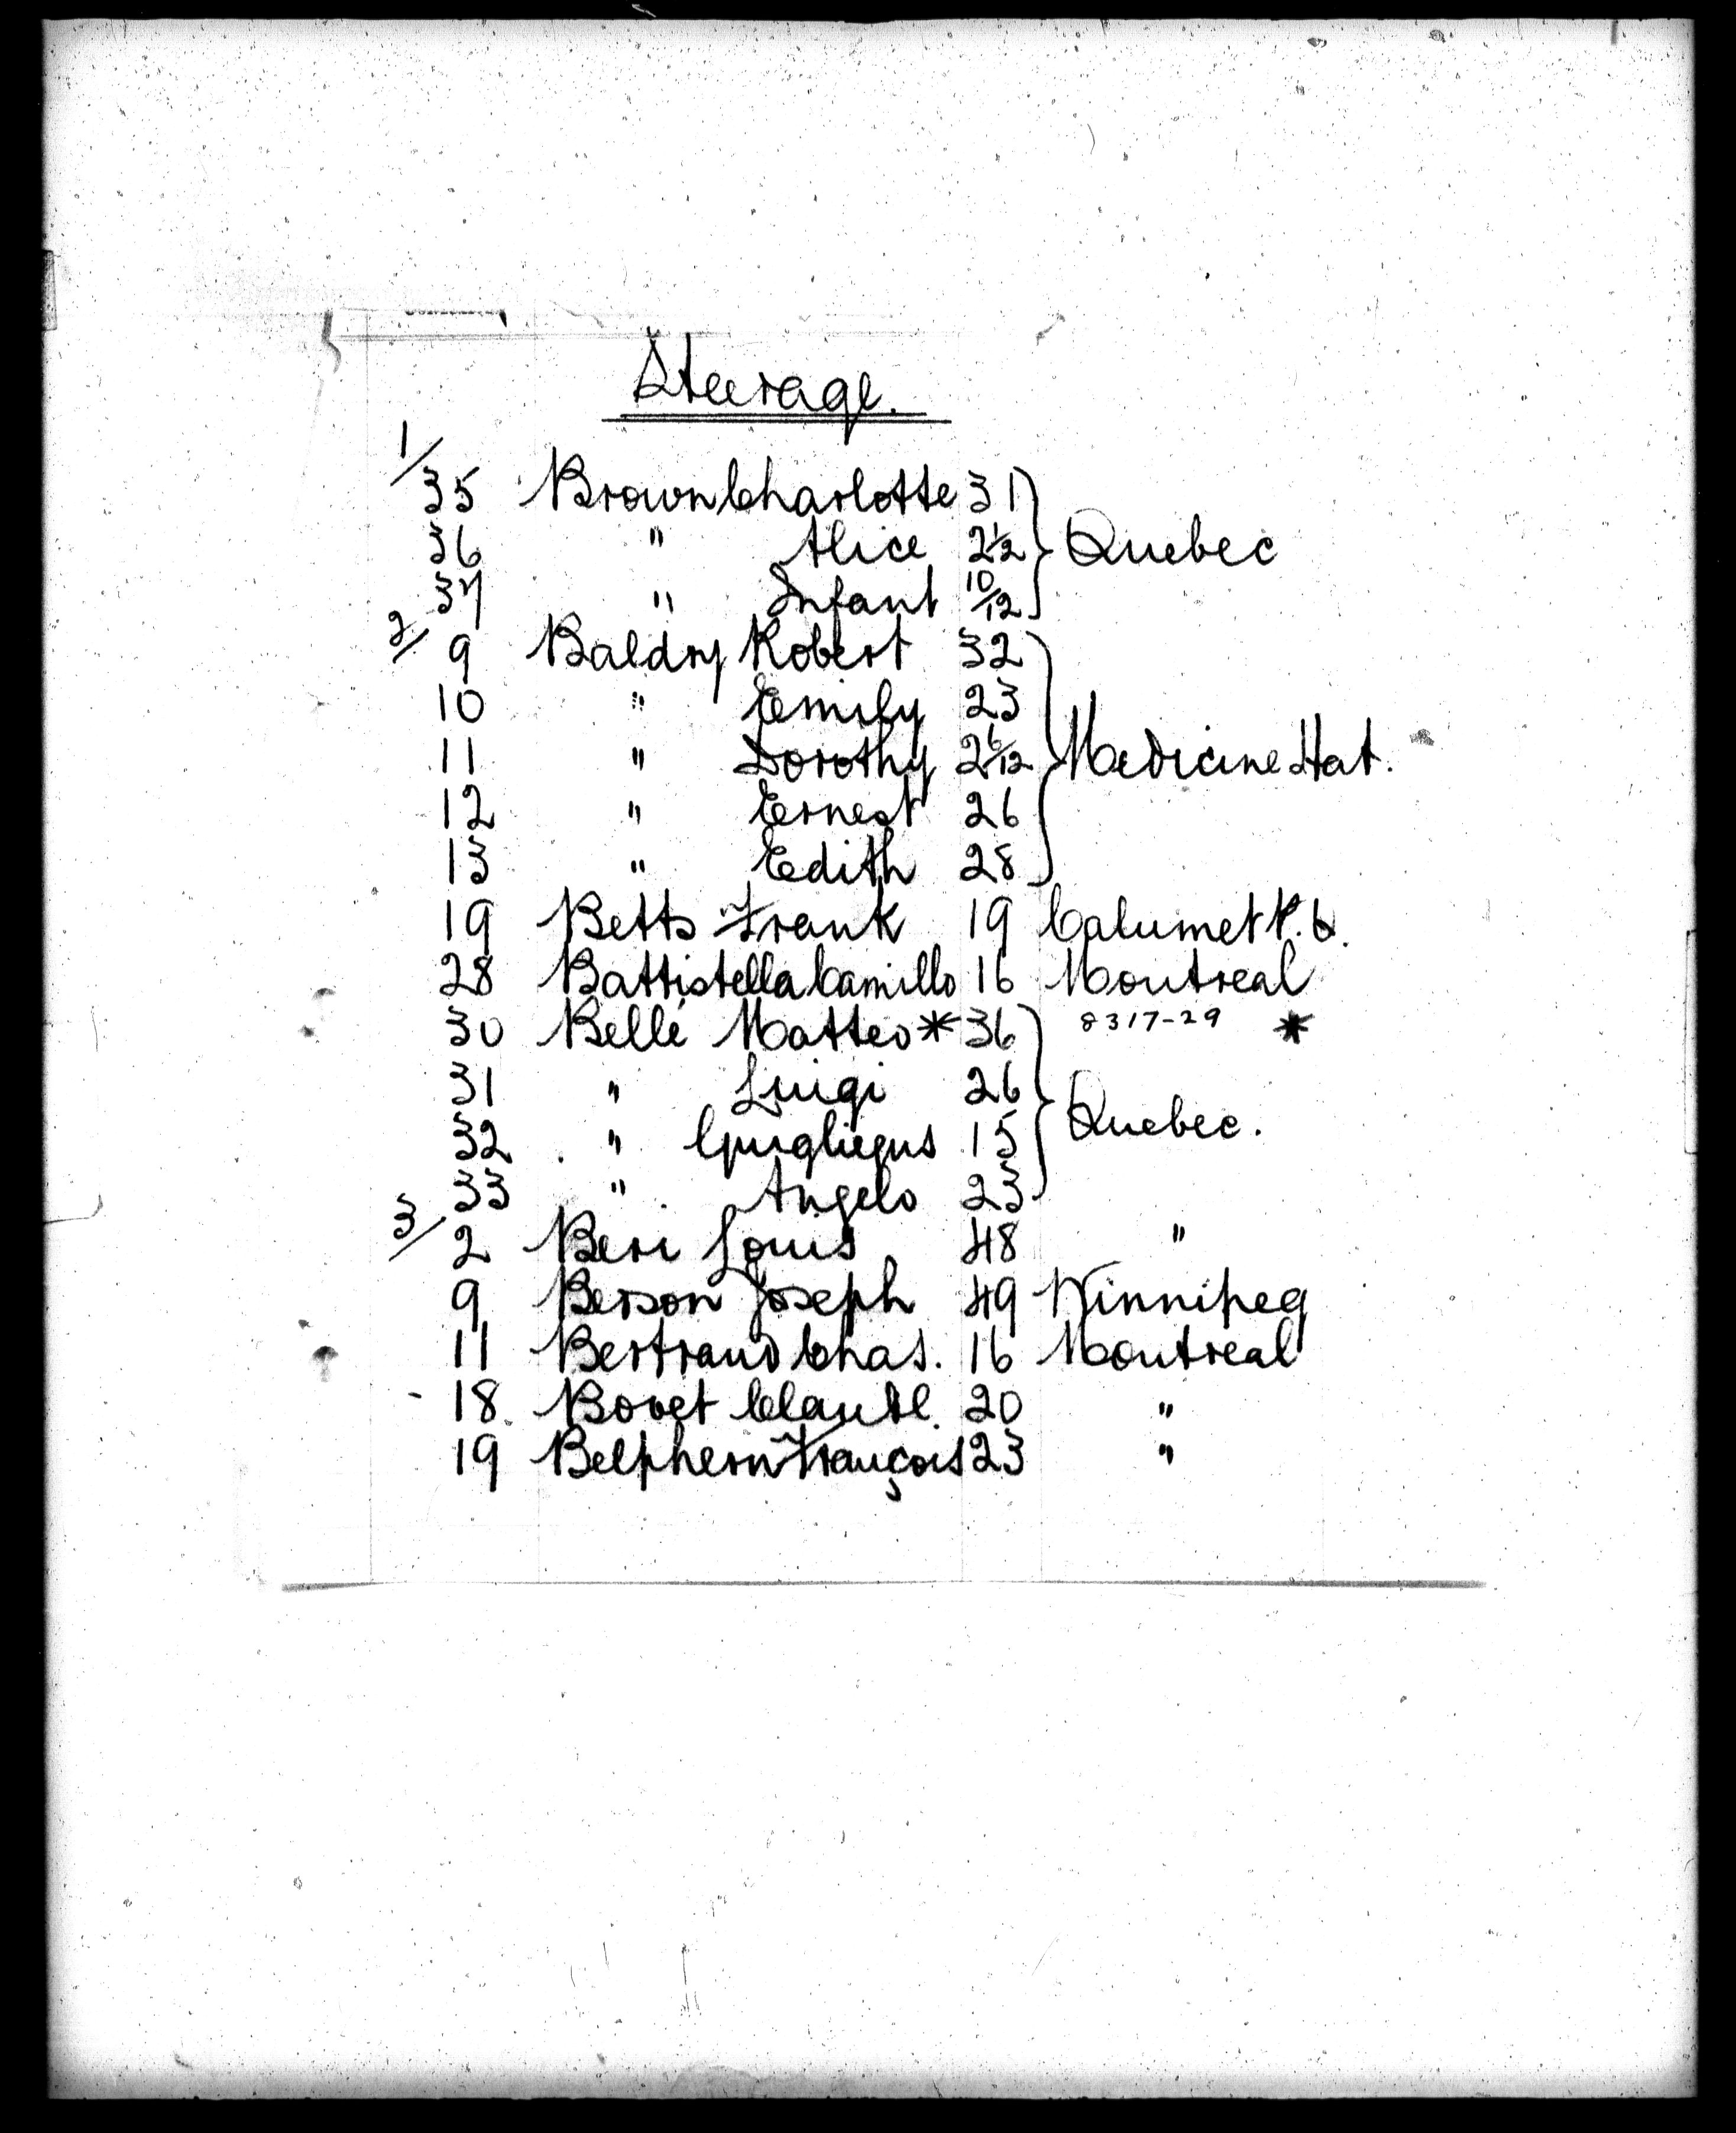 Steerage.
1/
35 Brown Charlotte 31
36 " Alice 2½ } Quebec
37 " Infant 10/12
2/
9 Baldry Robert 32
10 " Emily 23
11 " Dorothy 2 6/12 } Medicine Hat.
12 " Ernest 26
13 " Edith 28
19 Betts Frank 19 Calumet P.Q.
28 Battistella Camillo 16 Montreal
30 Belle Matteo * 36 8317-29 *
31 " Luigi 26
32 " 15 } Quebec.
33 " Angelo 23
3/
2 Beri Louis 48 "
9 Berson Joseph 49 Winnipeg
11 Bertrand Chas. 16 Montreal
18. Bovet 20 "
19 Belphern François 23 "